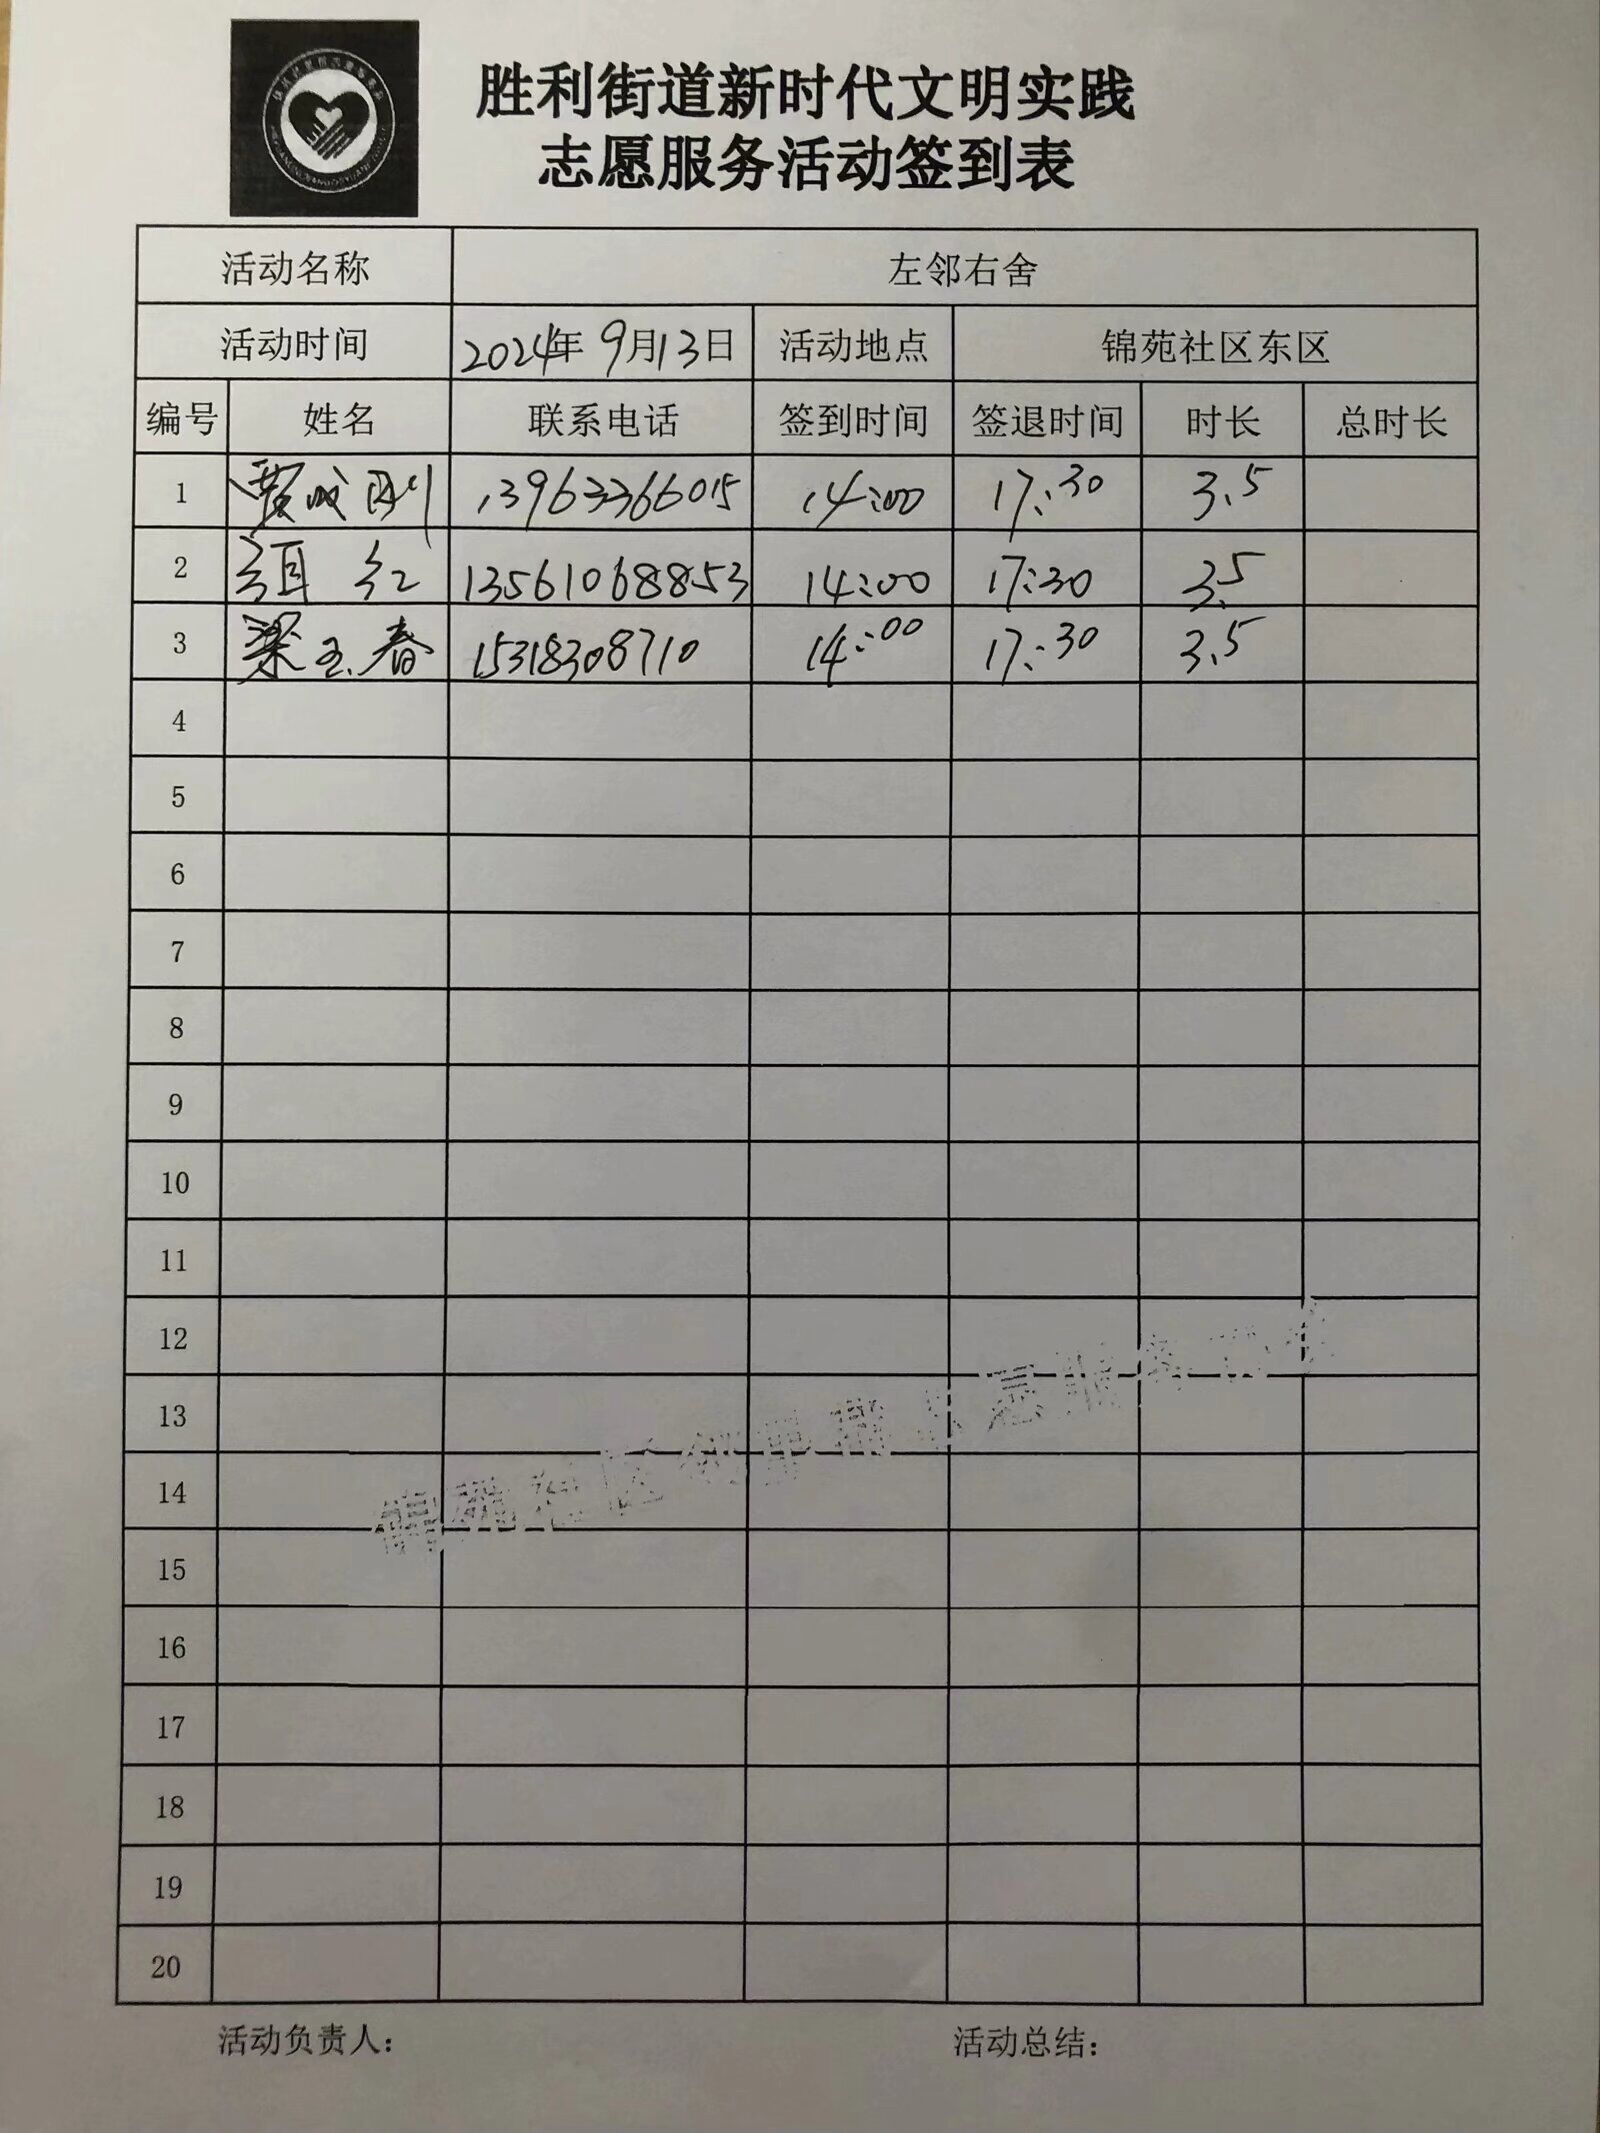 胜利街道新时代文明实践
志愿服务活动签到表
活动名称 左邻右舍
活动时间 2024年9月13日 活动地点 锦苑社区东区
编号 姓名 联系电话 签到时间 签退时间 时长 总时长
1 贾成刚 13963366015 14:00 17:30 3.5
2 红 13561068853 14:00 17:30 3.5
3 梁玉春 15318308710 14:00 17:30 3.5
4
5
6
7
8
9
10
11
12
13
14
15
16
17
18
19
20
活动负责人： 活动总结：